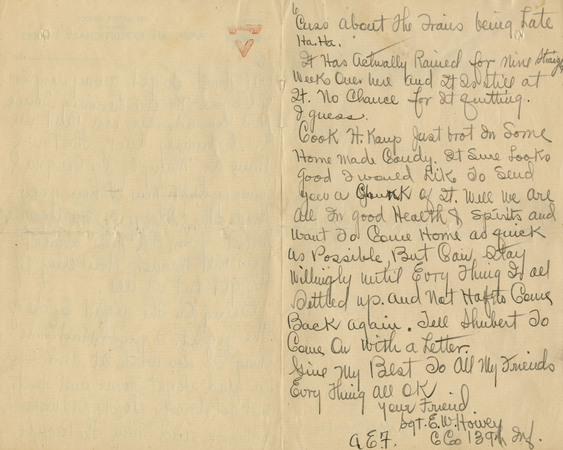 6
Cuss about the Trains being Late
Ha. Ha.
It Has Actually Rained for nine Straight
Weeks Over here and It Is still at
It. No Chance for It quitting.
I guess.
Cook H. Kaup Just brot In Some
Home Made Candy. It Sure Looks
good I would Like To Send
you a Chunk of It. Well we Are
All In good Health & Spirits and
Want To Come Home as quick
as Possible, But Can Stay
Willingly until Evry Thing Is all
Settled up. and Not Hafto Come
Back again. Tell Shubert To
Come On With a Letter.
Give My Best To All My Friends
Evry Thing All OK
your Friend.
Sgt. E.W. Howey
A E F. C Co 139th Inf.